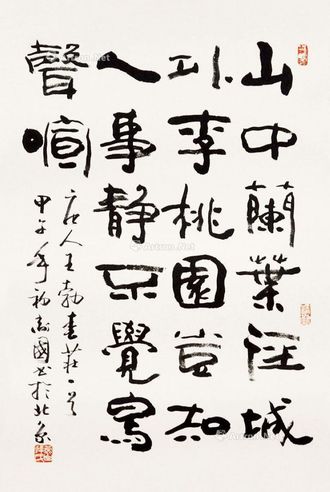 山中蘭葉徑城
外李桃園豈知
人事静不覺鳥
聲喧
唐人王勃春莊一首
甲子年國書於北京
Artron.Net